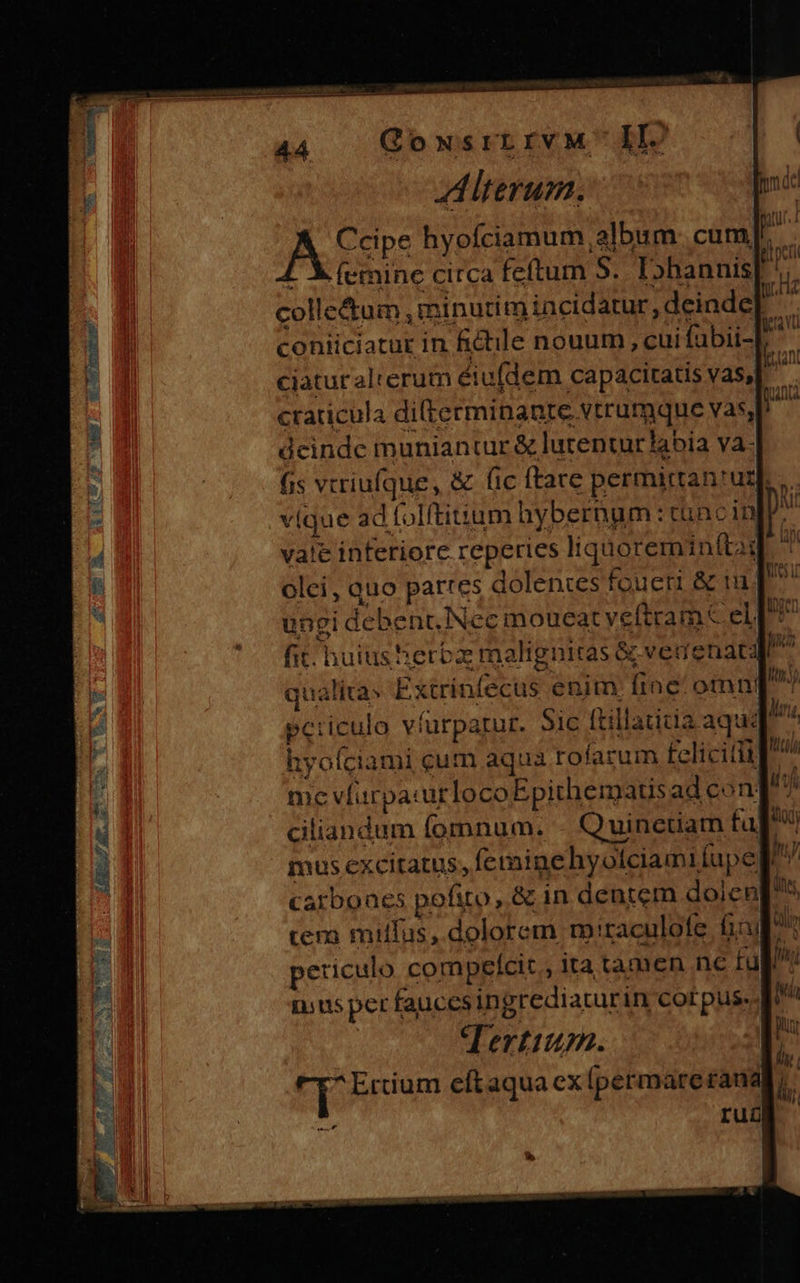 44 CONSILIVM II.
Alterum.
ACcipe hyoſciamum album cum
ſemine circa feſtum S. Iohannis
collectum, minutim incidatur, deinde
coniiciatur in fictile nouum, cui ſubii-
ciatur alterum eiuſdem capacitatis vas,
craticula diſterminante vtrumque vas,
deinde muniantur & lutentur labia va-
ſis vtriuſque, & ſic ſtare permittantur
vſque ad ſolſtitium hybernum: tunc in
vaſe inferiore reperies liquorem inſtar
olei, quo partes dolentes foueri & in
ungi debent. Nec moueat veſtram
fit. huius herbæ malignitas & venenata
qualitas Extrinſecus enim ſine omni
periculo vſurpatur. Sic ſtillatitia aqua
hyoſciami cum aqua roſarum feliciſſi
me vſurpatur loco Epithematis ad con
ciliandum ſomnum. Quinetiam fu
mus excitatus, ſemine hyoſciami ſupe
carbones poſito, & in dentem dolen
tem miſſus, dolorem miraculoſe ſine
periculo compeſcit, ita tamen ne fu
mus per fauces ingrediatur in corpus.
Tertium.
TErtium eſt aqua ex ſpermate rana
rum